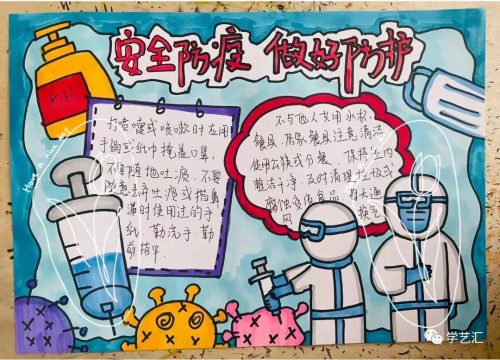 安全防疫 做好防护
打喷嚏或咳嗽时应用
手肘或纸巾掩盖口鼻,
不随随地吐痰,不要
随意丢弃吐痰或擤鼻
涕时使用过的手
纸,勤洗手,勤
剪指甲。
不与他人共用水杯,
餐具,居家餐具注意清洁
使用公筷或分餐,保持室内
整洁干净,及时清理垃圾或
腐蚀变质食品
通
风
换气
Have a nice day!
学艺汇